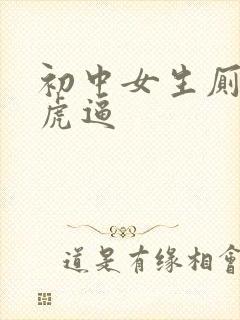 初中女生厕
虎逼
道是有缘相會